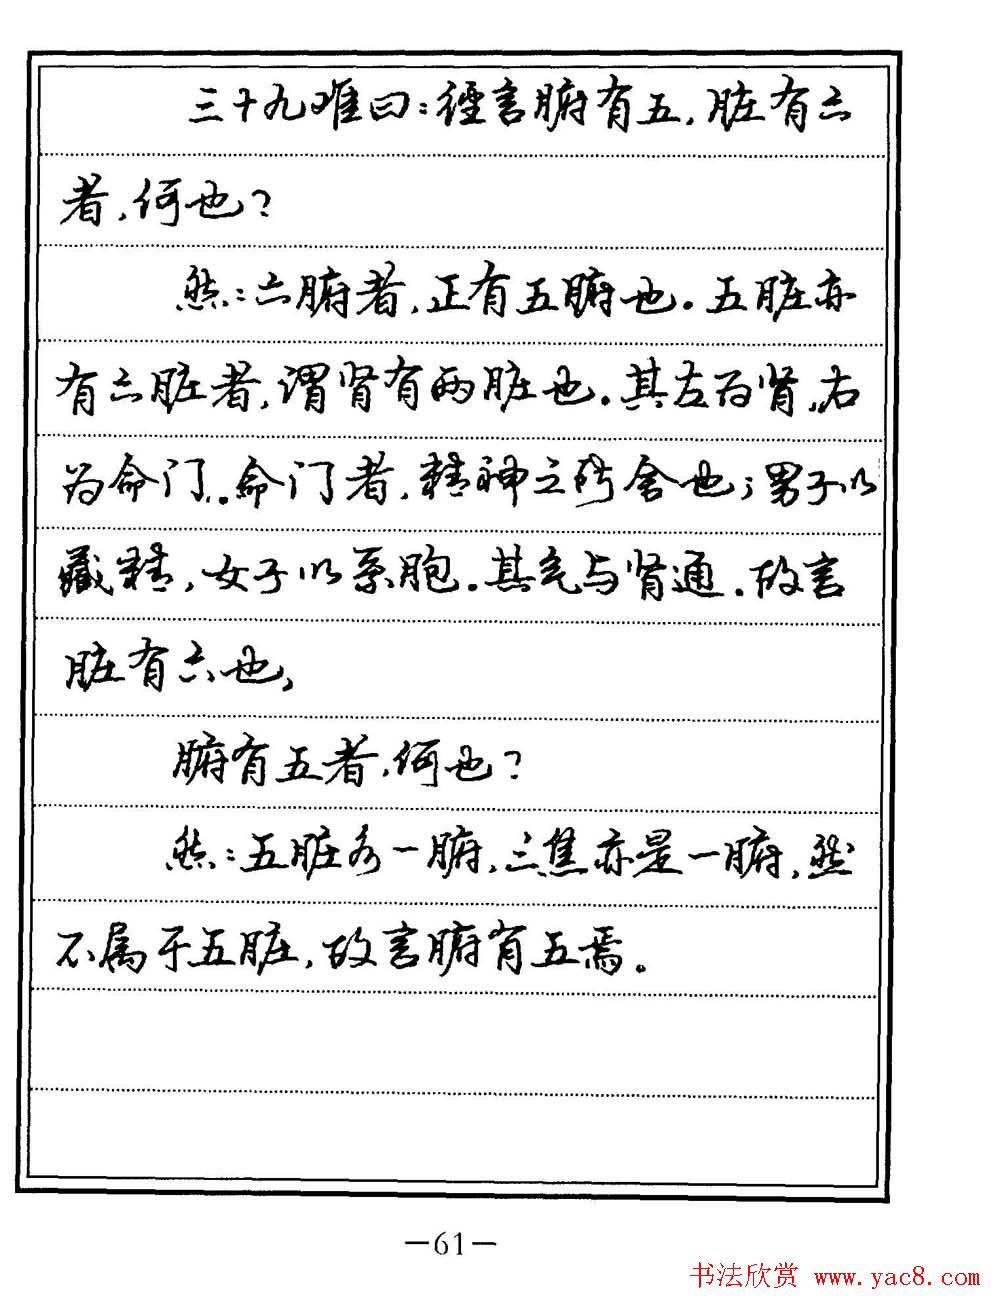 三十九难曰：经言腑有五，脏有六
者，何也？
然：六腑者，正有五腑也。五脏亦
有六脏者，谓肾有两脏也。其左为肾，右
为命门。命门者，精神之所舍也；男子以
藏精，女子以系胞。其气与肾通。故言
脏有六也，
腑有五者，何也？
然：五脏各一腑，三焦亦是一腑，然
不属于五脏，故言腑有五焉。
—61—
书法欣赏 www.yac8.com